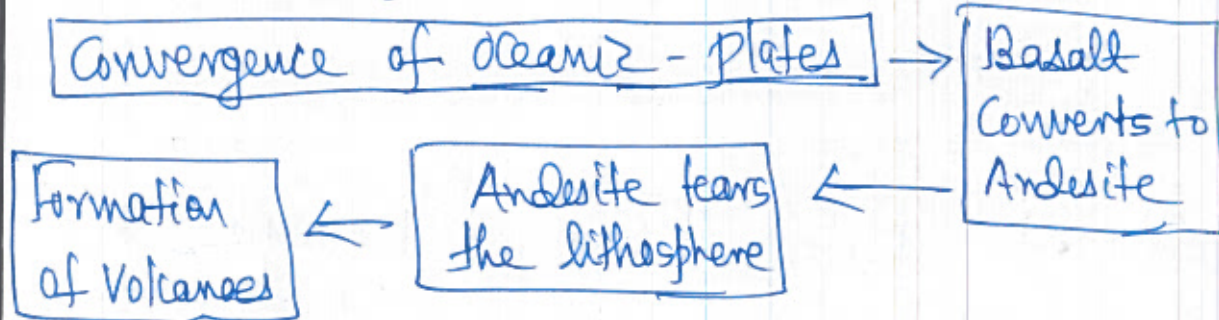 Convergence of oceanic - plates
Basalt
Converts to
Andesite
Andesite tears
the lithosphere
Formation
of Volcanoes